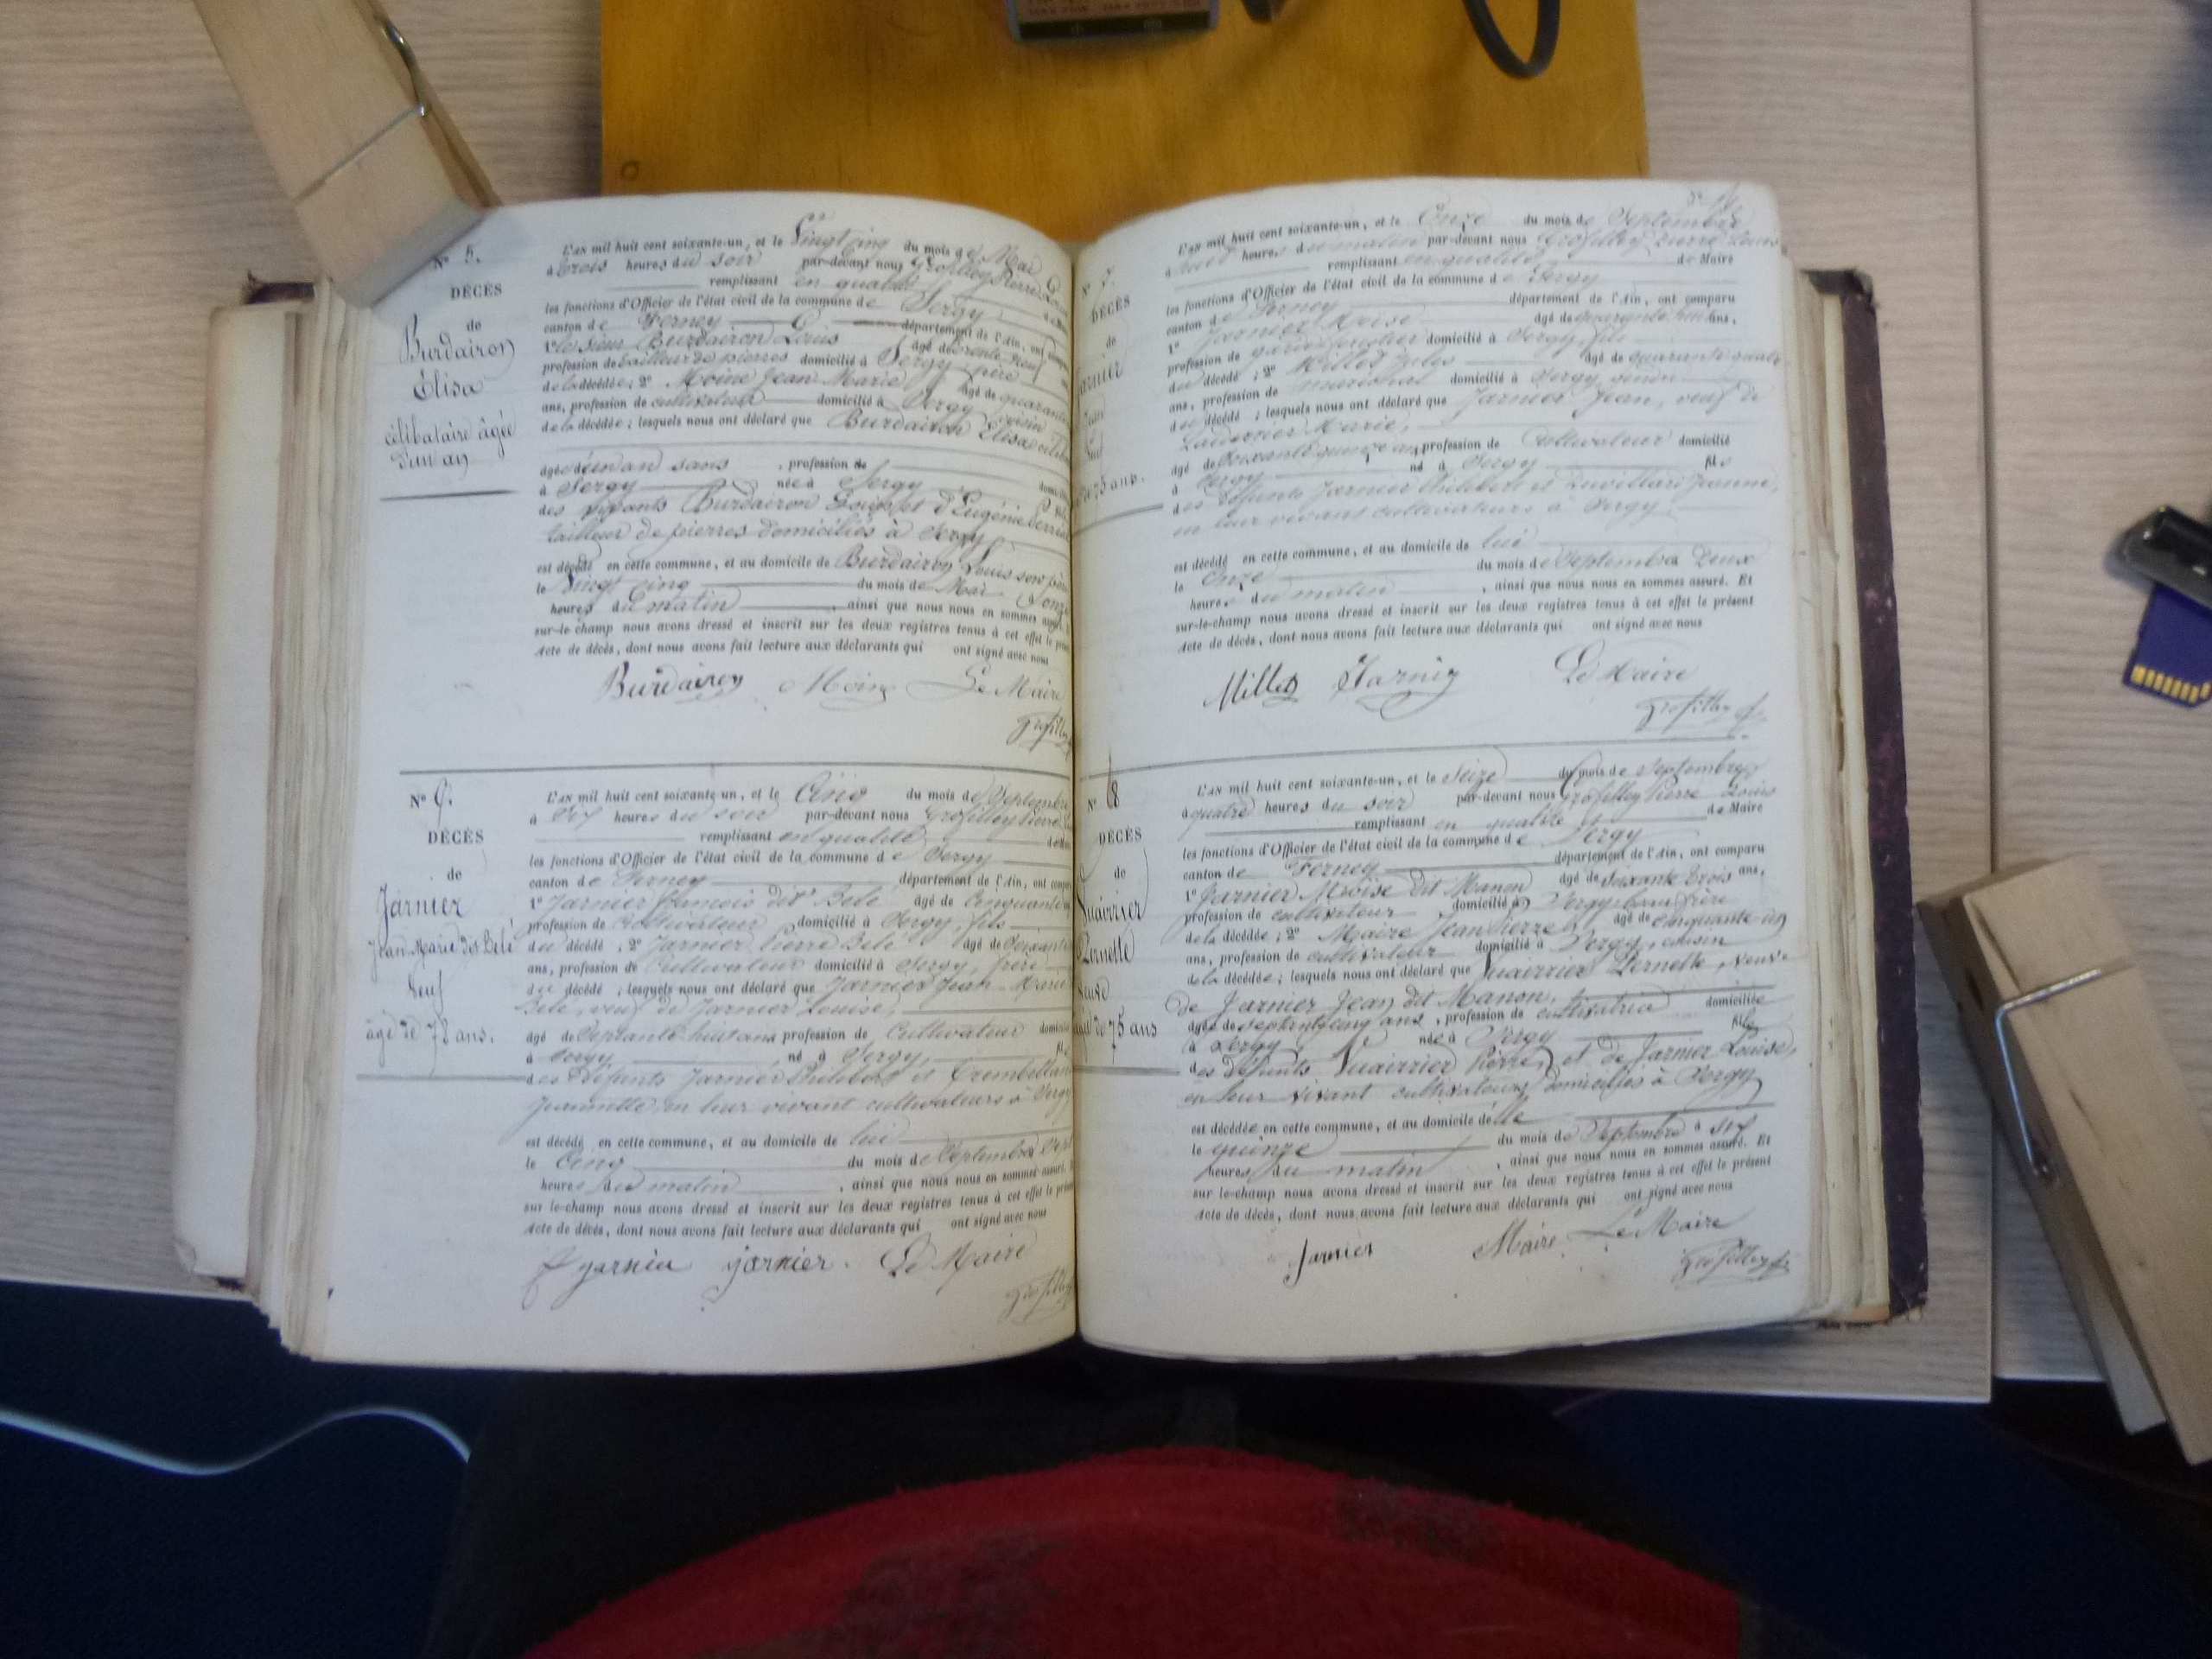 N° 5.
DÉCÈS
de
Burdairon
Élisa
célibataire âgée
d'un an
L'an mil huit cent soixante-un, et le Vingt cinq du mois de Mai
à trois heures du soir par-devant nous Grosfilley Pierre Louis
remplissant en qualité de Maire
les fonctions d'Officier de l'état civil de la commune de Sergy
canton de Ferney département de l'Ain, ont comparu
1° le sieur Burdairon Louis âgé de trente neuf
profession de tailleur de pierres domicilié à Sergy père
de la décédée; 2° Moine Jean Marie âgé de quarante
ans, profession de cultivateur domicilié à Sergy voisin
de la décédée; lesquels nous ont déclaré que Burdairon Élisa
âgée d'un an sans profession
à Sergy née à Sergy
des vivants Burdairon Louis et d'Eugénie
tailleur de pierres domiciliés à Sergy
est décédé en cette commune, et au domicile de Burdairon Louis son père
le Vingt cinq du mois de Mai
heures du matin, ainsi que nous nous en sommes assuré. Et
sur-le-champ nous avons dressé et inscrit sur les deux registres tenus à cet effet le présent
Acte de décès, dont nous avons fait lecture aux déclarants qui ont signé avec nous
Burdairon Moine Le Maire
Grosfilley
N° 6.
DÉCÈS
de
Jarnier
Jean Marie dit Bele
Veuf
âgé de 78 ans.
L'an mil huit cent soixante-un, et le Cinq du mois de Septembre
à six heures du soir par-devant nous Grosfilley Pierre
remplissant en qualité de Maire
les fonctions d'Officier de l'état civil de la commune de Sergy
canton de Ferney département de l'Ain, ont comparu
1° Jarnier françois dit Bele âgé de Cinquante
profession de Cultivateur domicilié à Sergy, fils
du décédé; 2° Jarnier Pierre Bele âgé de Soixante
ans, profession de Cultivateur domicilié à Sergy, frère
du décédé; lesquels nous ont déclaré que Jarnier Jean Marie
Bele, veuf de Jarnier Louise,
âgé de Septante huit ans profession de Cultivateur domicilié
à Sergy né à Sergy,
des défunts Jarnier Philibert et
Jeannette en leur vivant cultivateurs à Sergy
est décédé en cette commune, et au domicile de lui
le Cinq du mois de Septembre
heures du matin, ainsi que nous nous en sommes assuré. Et
sur le-champ nous avons dressé et inscrit sur les deux registres tenus à cet effet le présent
Acte de décès, dont nous avons fait lecture aux déclarants qui ont signé avec nous
f jarnier jarnier. Le Maire
Grosfilley
N° 7.
DÉCÈS
de
75 ans.
L'an mil huit cent soixante-un, et le Onze du mois de Septembre
à heures du matin par-devant nous Grosfilley Pierre Louis
remplissant en qualité de Maire
les fonctions d'Officier de l'état civil de la commune de Sergy
canton de Ferney département de l'Ain, ont comparu
1° Jarnier Moïse âgé de quarante huit ans,
profession de garde forestier domicilié à Sergy, fils
du décédé; 2° Millet Jules âgé de quarante quatre
ans, profession de domicilié à Sergy, gendre
du décédé; lesquels nous ont déclaré que Jarnier Jean, veuf de
Marie,
âgé de Soixante quinze ans profession de Cultivateur domicilié
à Sergy né à Sergy fils
des défunts Jarnier Philibert et Jeanne,
en leur vivant cultivateurs à Sergy
est décédé en cette commune, et au domicile de lui
le onze du mois de Septembre Deux
heures du matin, ainsi que nous nous en sommes assuré. Et
sur-le-champ nous avons dressé et inscrit sur les deux registres tenus à cet effet le présent
Acte de décès, dont nous avons fait lecture aux déclarants qui ont signé avec nous
Millet Jarnier Le Maire
Grosfilley
N° 8
DÉCÈS
de
Vuairrier
Pernette
Veuve
âgée de 75 ans
L'an mil huit cent soixante-un, et le Seize du mois de Septembre
à quatre heures du soir par-devant nous Grosfilley Pierre Louis
remplissant en qualité de Maire
les fonctions d'Officier de l'état civil de la commune de Sergy
canton de Ferney département de l'Ain, ont comparu
1° Jarnier Moïse dit Manon âgé de soixante trois ans,
profession de cultivateur domicilié à Sergy beau frère
de la décédée; 2° Maire Jean Pierre âgé de cinquante un
ans, profession de cultivateur domicilié à Sergy, cousin
de la décédée; lesquels nous ont déclaré que Vuairrier Pernette, veuve
de Jarnier Jean dit Manon,
âgée de septante cinq ans, profession de cultivatrice domiciliée
à Sergy née à Sergy fille
des défunts Vuairrier Pierre, et de Jarnier Louise,
en leur vivant cultivateurs domiciliés à Sergy
est décédée en cette commune, et au domicile d'elle
le quinze du mois de Septembre à six
heures du matin, ainsi que nous nous en sommes assuré. Et
sur le-champ nous avons dressé et inscrit sur les deux registres tenus à cet effet le présent
Acte de décès, dont nous avons fait lecture aux déclarants qui ont signé avec nous
Jarnier Maire Le Maire
Grosfilley